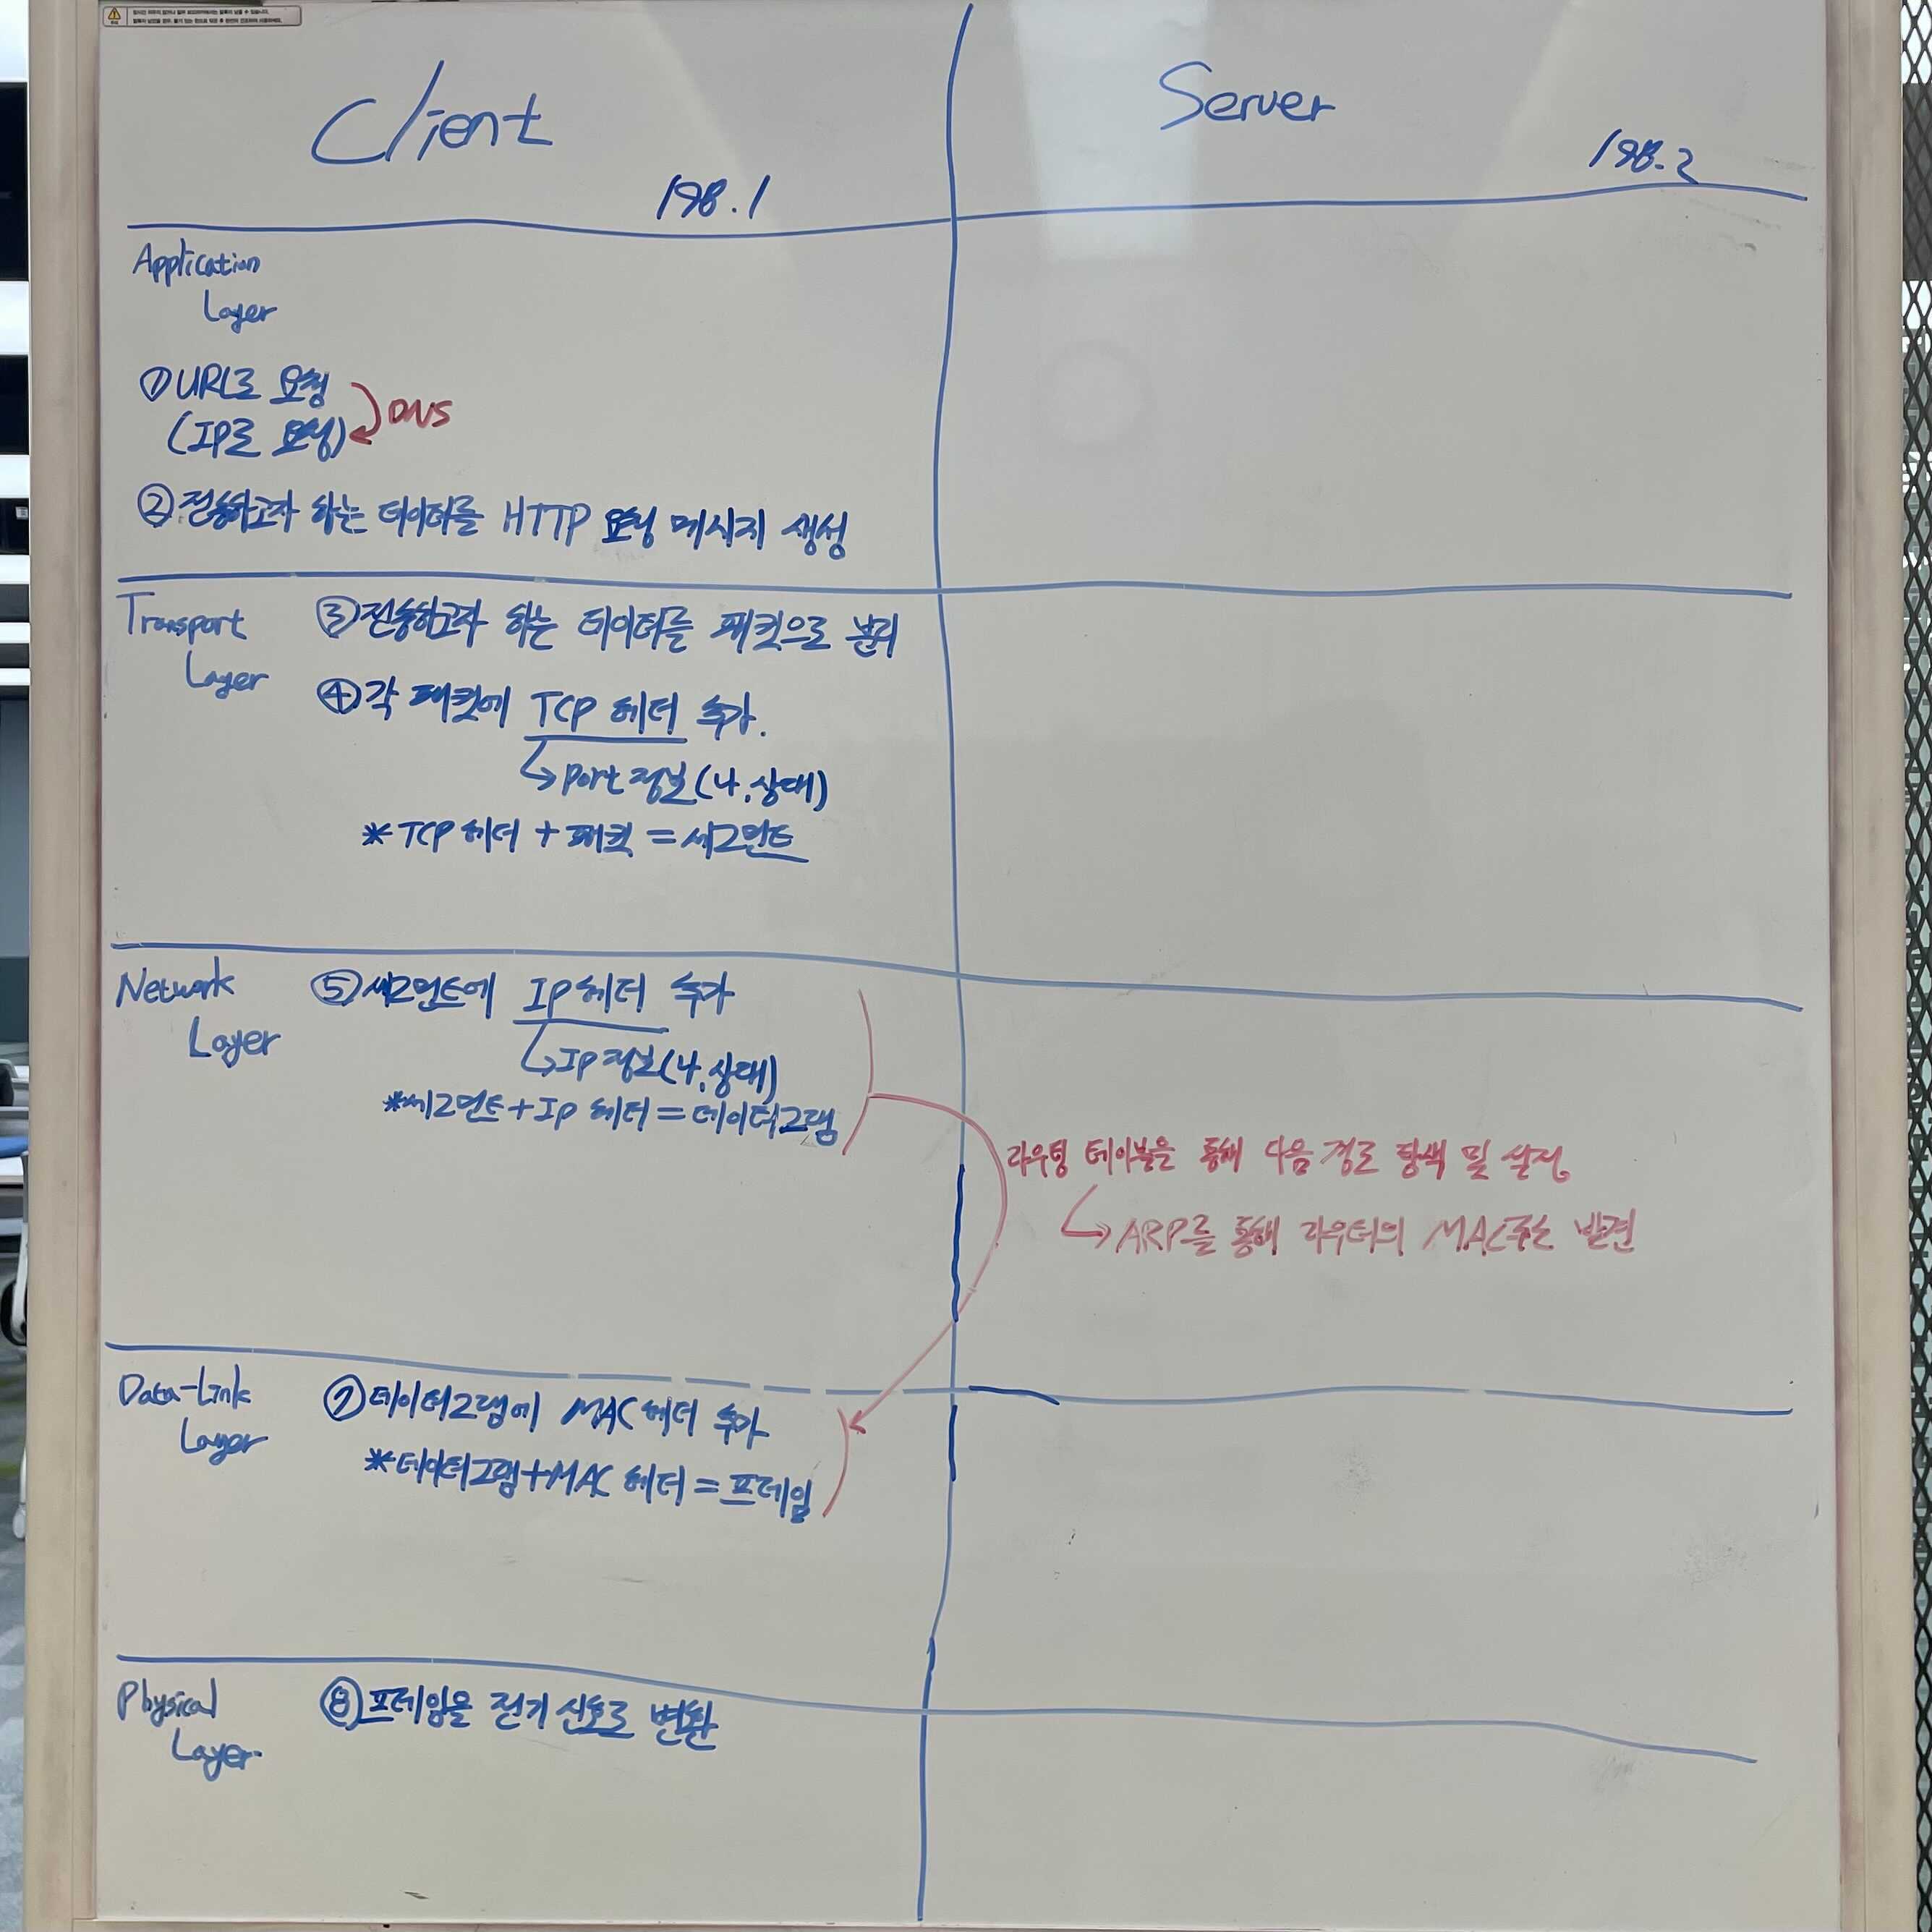 Client
198.1
Server
198.2
Application
Layer
① URL로 요청
(IP로 요청)
DNS
② 전송하고자 하는 데이터를 HTTP 요청 메시지 생성
Transport
Layer
③ 전송하고자 하는 데이터를 패킷으로 분리
④ 각 패킷에 TCP 헤더 추가.
↳ Port 정보 (나, 상대)
* TCP 헤더 + 패킷 = 세그먼트
Network
Layer
⑤ 세그먼트에 IP 헤더 추가
↳ IP 정보 (나, 상대)
* 세그먼트 + IP 헤더 = 데이터그램
라우팅 테이블을 통해 다음 경로 탐색 및 설정
↳ ARP를 통해 라우터의 MAC주소 발견
Data-Link
Layer
⑦ 데이터그램에 MAC 헤더 추가
* 데이터그램 + MAC 헤더 = 프레임
Physical
Layer
⑧ 프레임을 전기 신호로 변환